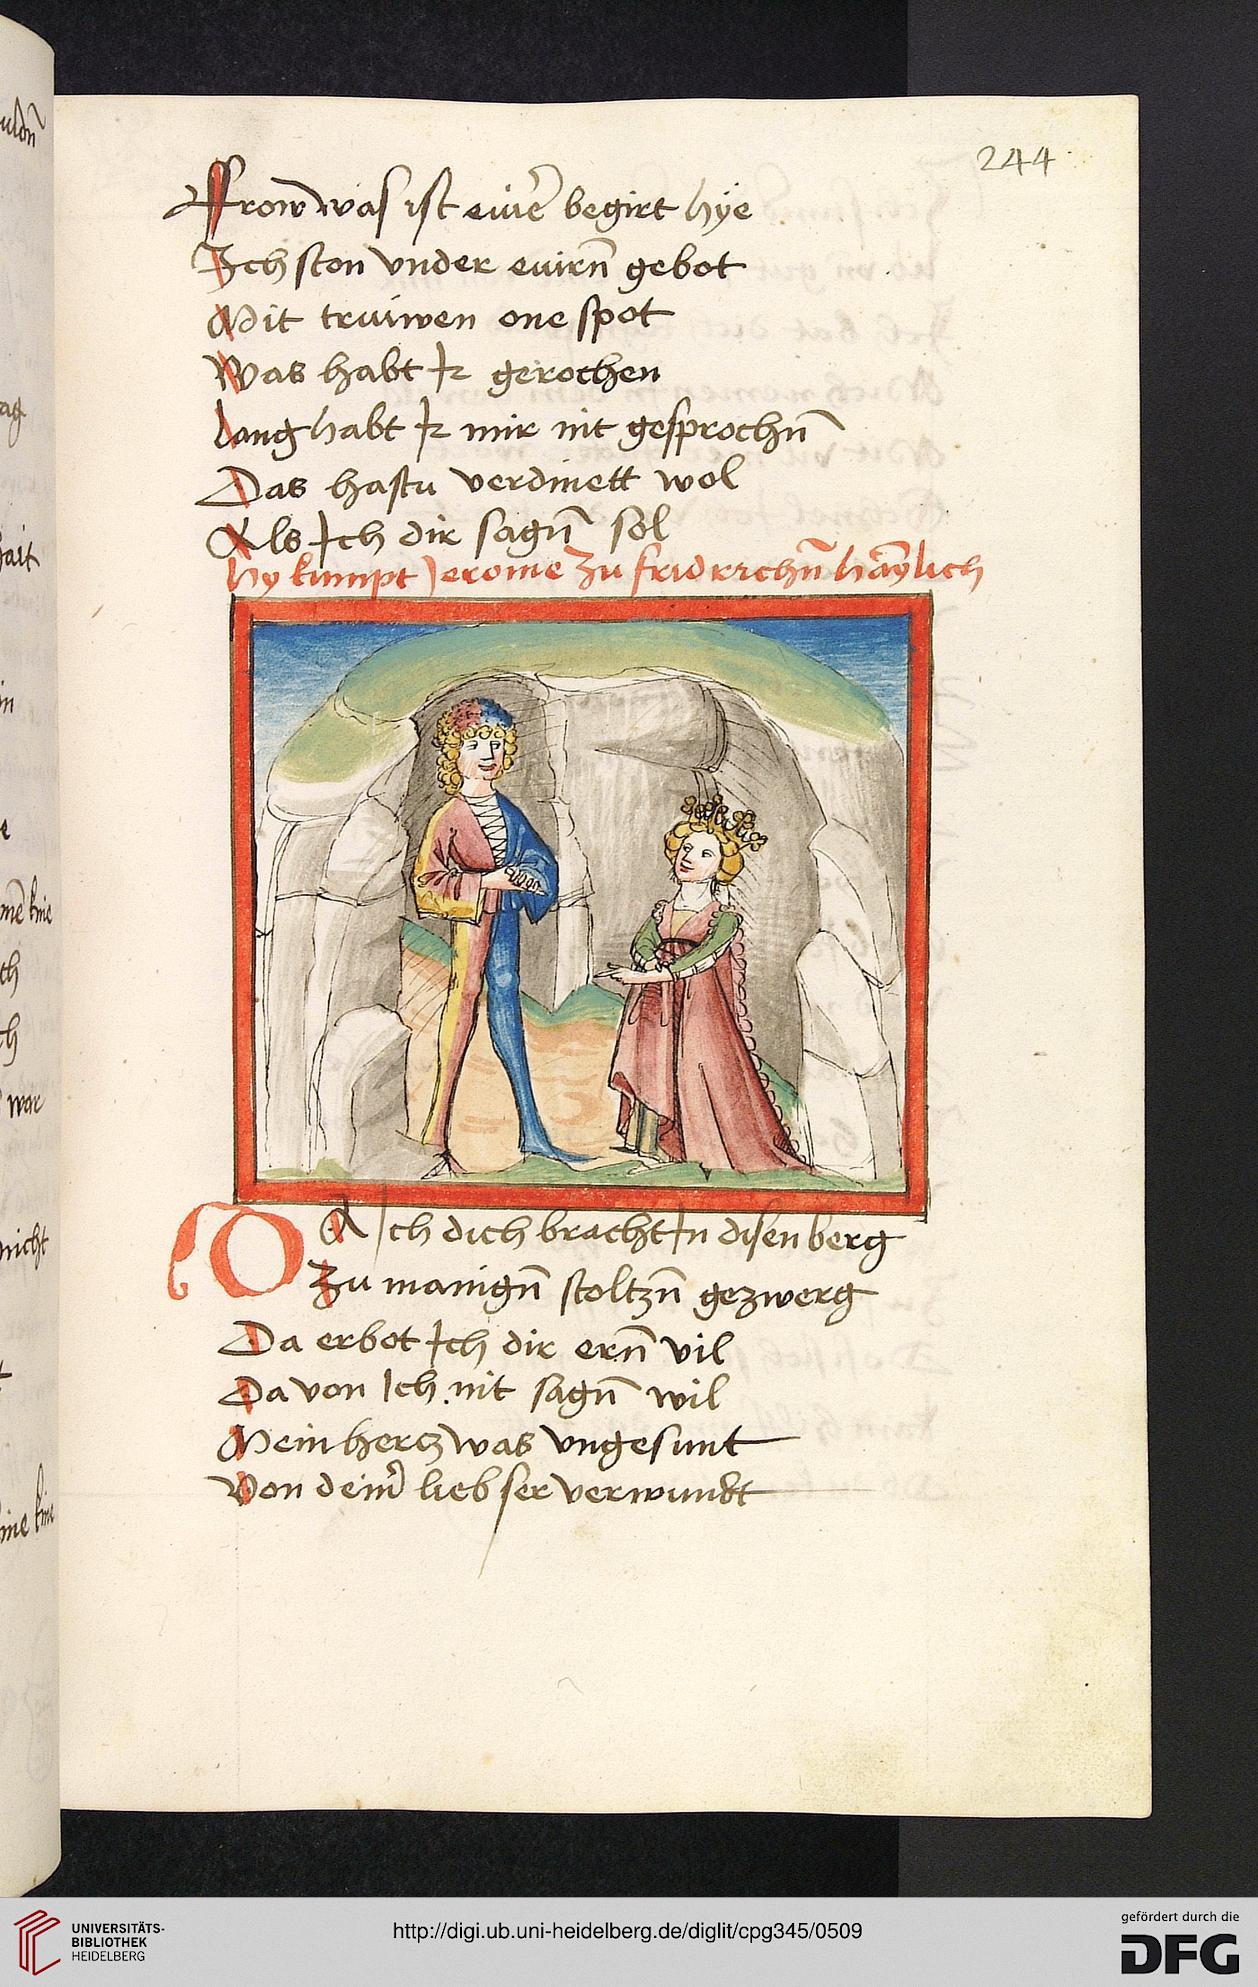 244
Frow was ist euwer̄ begirt hÿe
Ich ston vnder euwrn̄ gebot
Mit truwen one spot
Was habt Ir gerochen
Lang habt Ir mir nit gesprochn̄
Das hastu verdinett wol
Als Ich dir sagn̄ sol
hy kumpt Jerome zu fridrichn̄ haÿlich
DA Ich dich bracht In disen berg
Zu manign̄ stoltzn̄ gezwerg
Da erbot Ich dir ern̄ vil
Da von Ich nit sagn̄ wil
Mein hertz was vngesunt
Von dein̄ lieb ser verwundt
nicht
war
UNIVERSITÄTS-
BIBLIOTHEK
HEIDELBERG
http://digi.ub.uni-heidelberg.de/diglit/cpg345/0509
gefördert durch die
DFG